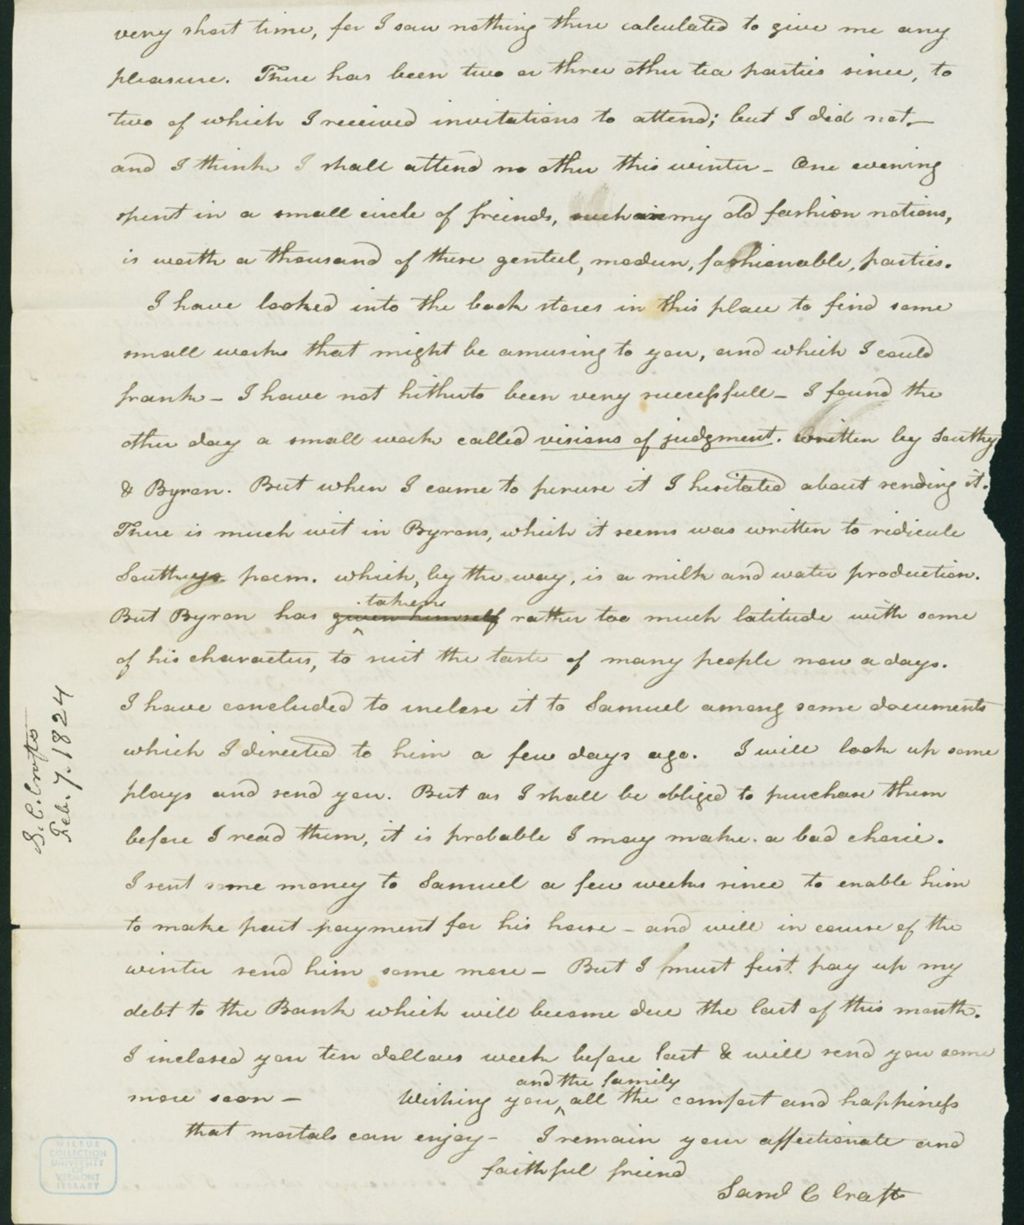 very short time, for I saw nothing there calculated to give me any
pleasure. There has been two or three other tea parties since, to
two of which I received invitations to attend; but I did not —
and I think I shall attend no other this winter — One evening
spent in a small circle of friends, such is my old fashion notions,
is worth a thousand of these genteel, modern, fashionable, parties.
I have looked into the book stores in this place to find some
small works that might be amusing to you, and which I could
frank — I have not hitherto been very successfull — I found the
other day a small work called visions of judgment. written by Southy
& Byron. But when I came to peruse it I hesitated about sending it.
There is much wit in Byrons, which it seems was written to ridicule
Southeys poem. which, by the way, is a milk and water production.
taken
But Byron has given himself rather too much latitude with some
of his characters, to suit the taste of many people now a days.
I have concluded to inclose it to Samuel among some documents
which I directed to him a few days ago. I will look up some
plays and send you. But as I shall be obliged to purchase them
before I read them, it is probable I may make a bad choice.
I sent some money to Samuel a few weeks since to enable him
to make part payment for his horse — and will in course of the
winter send him some more — But I must first pay up my
debt to the Bank which will become due the last of this month.
I inclosed you ten dollars week before last & will send you some
and the family
more soon — Wishing you ‸ all the comfort and happiness
that mortals can enjoy — I remain your affectionate and
faithful friend
Saml C Crafts
S. C. Crafts
Feb. 7. 1824
WILBUR
COLLECTION
UNIVERSITY
OF
VERMONT
LIBRARY